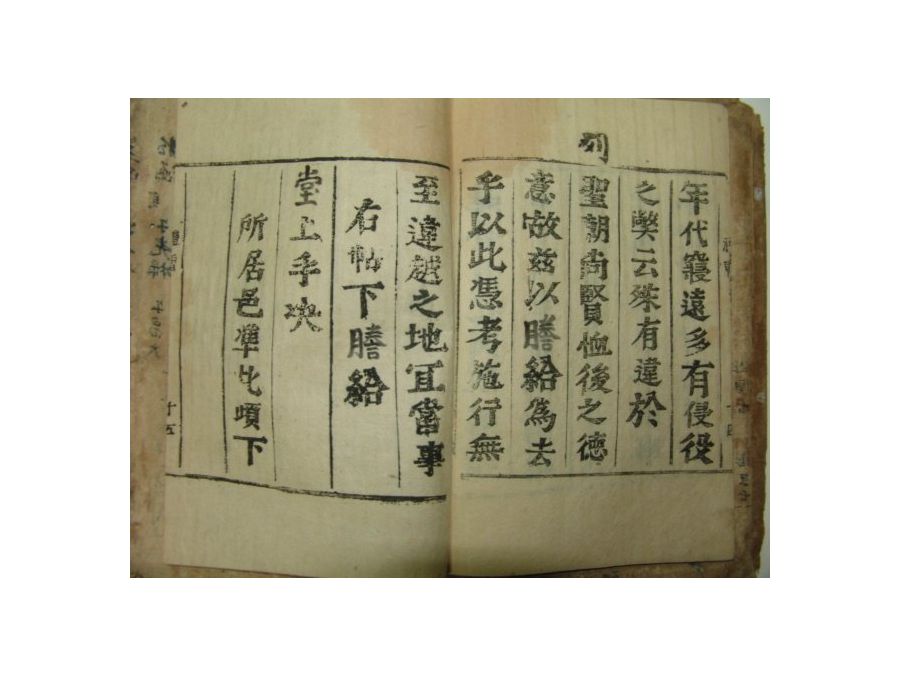 年代寝遠多有侵役
之獘云殊有違於
列
聖朝尚賢恤後之德
意故玆以謄給爲去
乎以此憑考施行無
至違越之地冝當事
右帖下謄給
堂上手决
所居邑準此頉下
十五